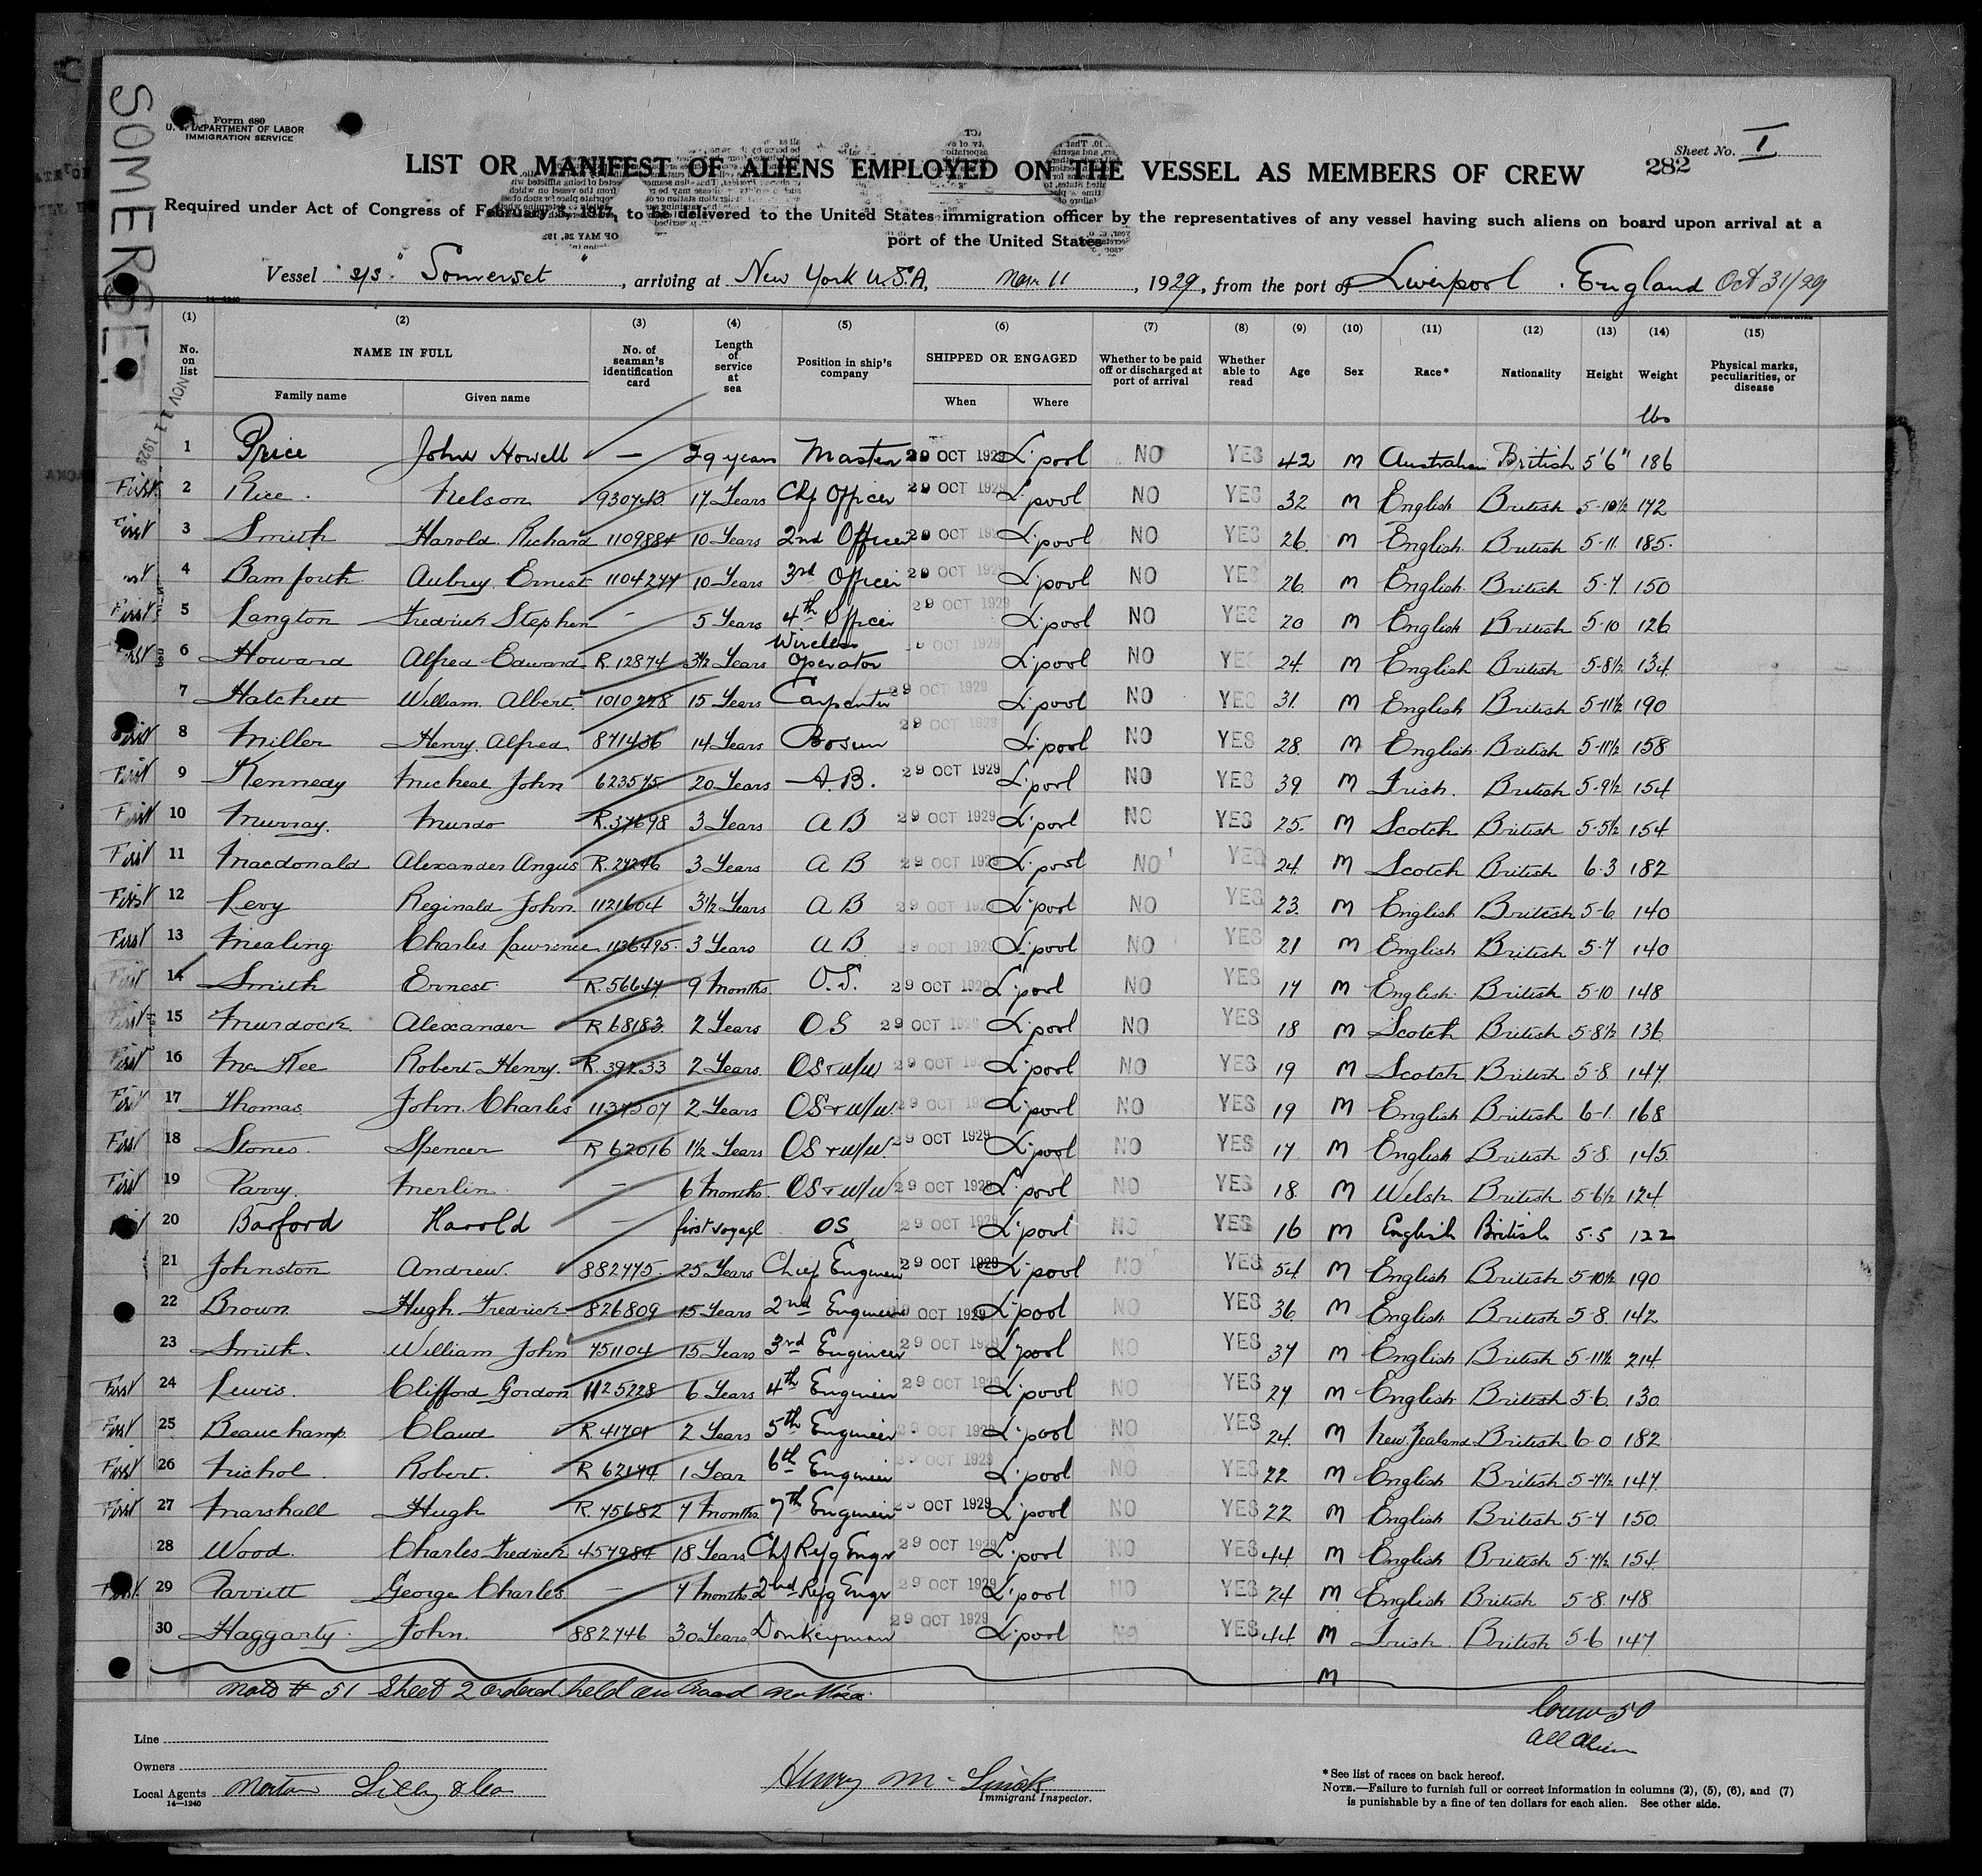 SOMERSET.
Form 680
U. S. DEPARTMENT OF LABOR
IMMIGRATION SERVICE
Sheet No. I
282
LIST OR MANIFEST OF ALIENS EMPLOYED ON THE VESSEL AS MEMBERS OF CREW
Required under Act of Congress of February 5, 1917, to be delivered to the United States immigration officer by the representatives of any vessel having such aliens on board upon arrival at a
port of the United States
Vessel s/s "Somerset", arriving at New York U.S.A, Nov 11, 1929, from the port of Liverpool. England Oct 31/29
14-1240
(1) (2) (3) (4) (5) (6) (7) (8) (9) (10) (11) (12) (13) (14) (15)
No. on list NAME IN FULL No. of seaman's identification card Length of service at sea Position in ship's company SHIPPED OR ENGAGED Whether to be paid off or discharged at port of arrival Whether able to read Age Sex Race* Nationality Height Weight Physical marks, peculiarities, or disease
Family name Given name When Where
lbs
NOV 11 1929
1 Price John Howell — 29 years Master 29 OCT 1929 L'pool NO YES 42 M Australian British 5'6" 186
First 2 Rice. Nelson 930743 17 Years Chf Officer 29 OCT 1929 L'pool NO YES 32 M English British 5-10½ 172
First 3 Smith Harold Richard 1109884 10 Years 2nd Officer 29 OCT 1929 L'pool NO YES 26 M English British 5-11 185
First 4 Bamforth Aubrey Ernest 1104277 10 Years 3rd Officer 29 OCT 1929 L'pool NO YES 26 M English British 5-7 150
First 5 Langton Fredrick Stephen - 5 Years 4th Officer 29 OCT 1929 L'pool NO YES 20 M English British 5-10 126
First 6 Howard Alfred Edward R.12874 3½ Years Wireless Operator OCT 1929 L'pool NO YES 24 M English British 5-8½ 134
7 Hatchett William Albert 1010278 15 Years Carpenter 29 OCT 1929 L'pool NO YES 31 M English British 5-11½ 190
First 8 Miller Henry Alfred 871436 14 Years Bosun 29 OCT 1929 L'pool NO YES 28 M English British 5-11½ 158
First 9 Kennedy Micheal John 623575 20 Years A.B. 29 OCT 1929 L'pool NO YES 39 M Irish British 5-9½ 154
First 10 Murray. Murdo R.37698 3 Years A B 29 OCT 1929 L'pool NO YES 25 M Scotch British 5-5½ 154
First 11 Macdonald Alexander Angus R.27246 3 Years A B 29 OCT 1929 L'pool NO YES 24 M Scotch British 6-3 182
First 12 Levy Reginald John 1121604 3½ Years A B 29 OCT 1929 L'pool NO YES 23 M English British 5-6 140
First 13 Mealing Charles Lawrence 1136495 3 Years A B 29 OCT 1929 L'pool NO YES 21 M English British 5-7 140
First 14 Smith Ernest R.56647 9 Months O.S. 29 OCT 1929 L'pool NO YES 17 M English British 5-10 148
First 15 Murdock Alexander R 68183 2 Years OS 29 OCT 1929 L'pool NO YES 18 M Scotch British 5-8½ 136
First 16 Mc Kee Robert Henry R.39233 2 Years OS & W/W 29 OCT 1929 L'pool NO YES 19 M Scotch British 5-8 147
First 17 Thomas John Charles 1137507 2 Years OS & W/W 29 OCT 1929 L'pool NO YES 19 M English British 6-1 168
First 18 Stones. Spencer R 62016 1½ Years OS & W/W 29 OCT 1929 L'pool NO YES 17 M English British 5-8 145
First 19 Parry. Merlin - 6 Months OS & W/W 29 OCT 1929 L'pool NO YES 18 M Welsh British 5-6½ 124
20 Barford Harold - first voyage OS 29 OCT 1929 L'pool NO YES 16 M English British 5-5 122
21 Johnston Andrew 882775 25 Years Chief Engineer 29 OCT 1929 L'pool NO YES 54 M English British 5-10½ 190
22 Brown Hugh Fredrick 826809 15 Years 2nd Engineer 29 OCT 1929 L'pool NO YES 36 M English British 5-8 142
23 Smith. William John 751104 15 Years 3rd Engineer 29 OCT 1929 L'pool NO YES 37 M English British 5-11½ 214
First 24 Lewis. Clifford Gordon 1125228 6 Years 4th Engineer 29 OCT 1929 L'pool NO YES 27 M English British 5-6 130
First 25 Beauchamp. Claud R.41701 2 Years 5th Engineer 29 OCT 1929 L'pool NO YES 24 M New Zealand British 6-0 182
First 26 Nichol. Robert. R 62174 1 Year 6th Engineer 29 OCT 1929 L'pool NO YES 22 M English British 5-7½ 147
First 27 Marshall Hugh R.75682 7 Months 7th Engineer 29 OCT 1929 L'pool NO YES 22 M English British 5-7 150
28 Wood. Charles Fredrick 457984 18 Years Chf Refg Engr 29 OCT 1929 L'pool NO YES 44 M English British 5-7½ 154
First 29 Parriett George Charles - 7 Months 2nd Refg Engr 29 OCT 1929 L'pool NO YES 24 M English British 5-8 148
30 Haggarty. John. 882746 30 Years Donkeyman 29 OCT 1929 L'pool NO YES 44 M Irish British 5-6 147
M
# 51 Sheet 2 ordered held on board
Crew 50
all alien
Line
Owners
Local Agents Norton Lilly & Co
14-1240
Henry
Immigrant Inspector.
*See list of races on back hereof.
NOTE.—Failure to furnish full or correct information in columns (2), (5), (6), and (7)
is punishable by a fine of ten dollars for each alien. See other side.